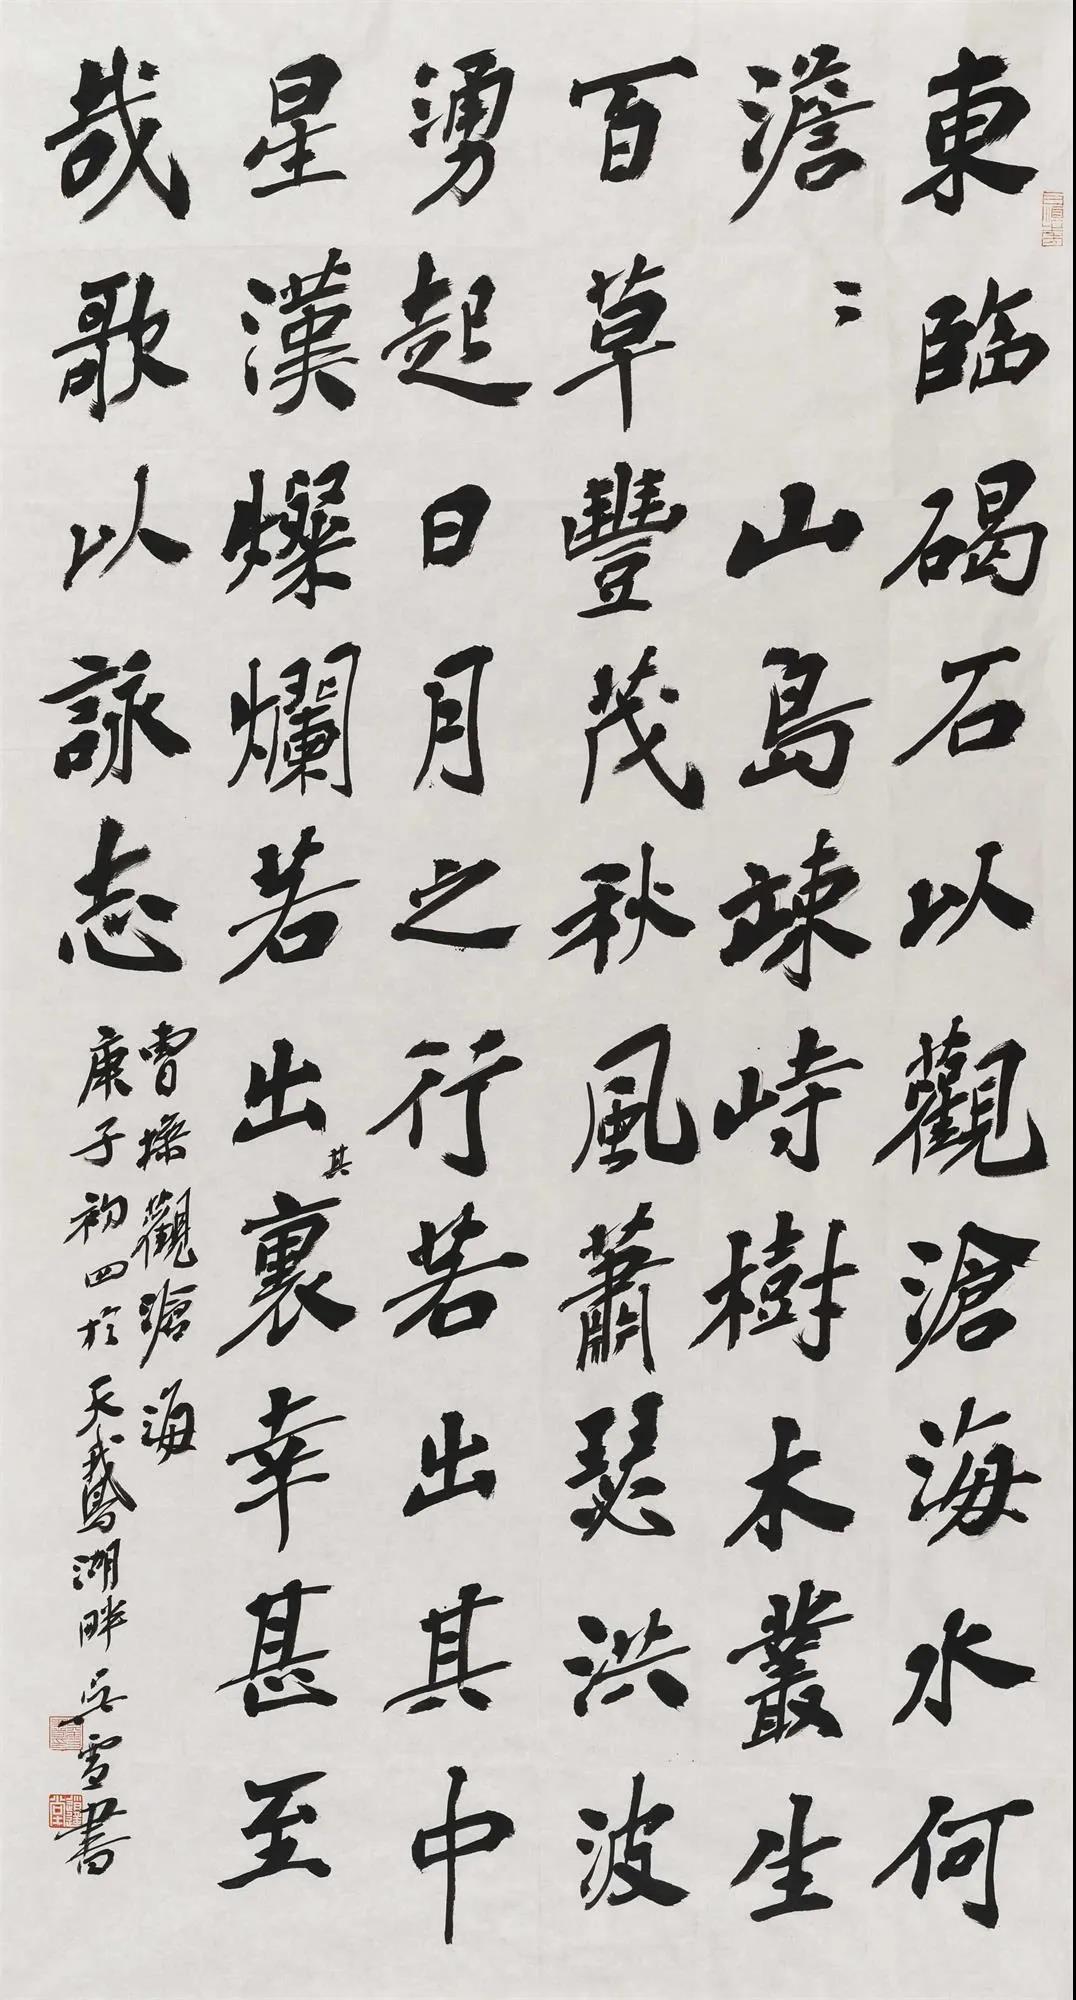 東臨碣石以觀滄海水何
澹〻山島竦峙樹木叢生
百草豐茂秋風蕭瑟洪波
湧起日月之行若出其中
星漢燦爛若出其裏幸甚至
哉歌以詠志
曹操觀滄海
庚子初四於天鵝湖畔吳雪書